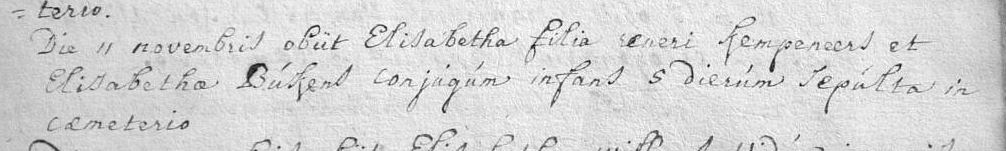 = terio.
Die 11 novembris obiit Elisabetha filia reneri Kempeneers et
Elisabethæ Büskens conjúgúm infans 5 dierúm sepúlta in
cæmeterio